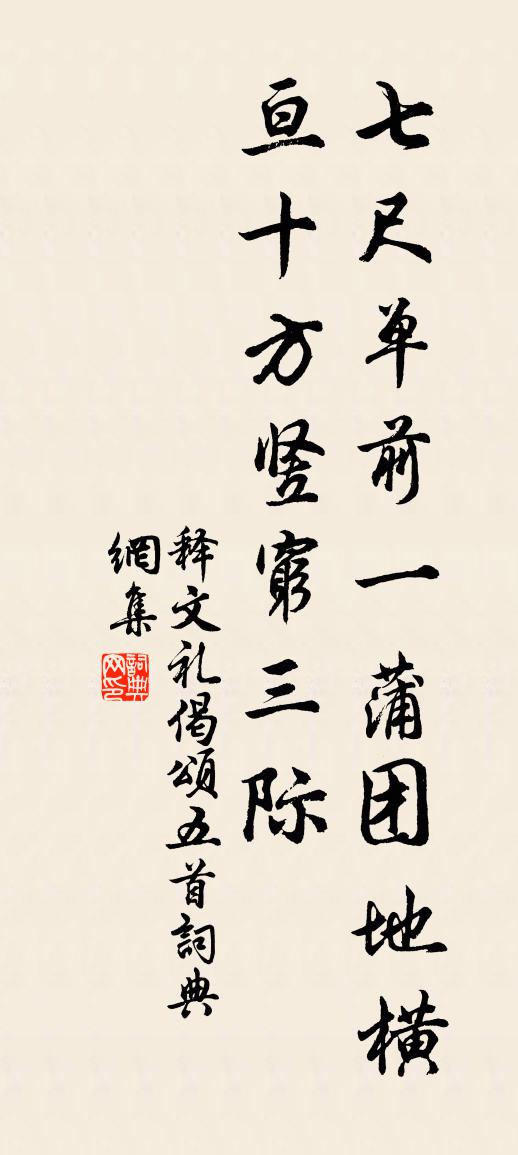 七尺单前一蒲团地横
亘十方竖穷三际
释文礼偈頌五首詞典
網集
詞典
网印